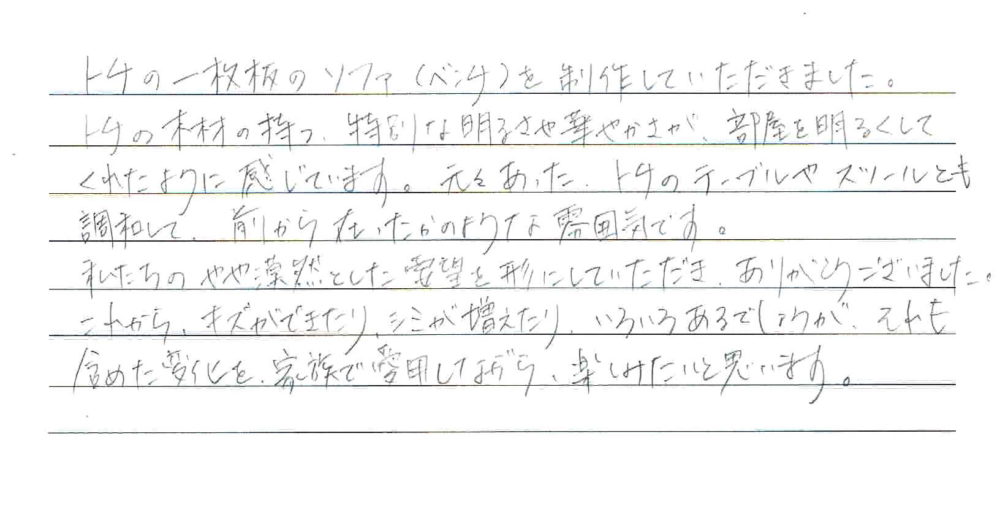 トチの一枚板のソファ(ベンチ)を制作していただきました。
トチの木材の持つ、特別な明るさや華やかさが、部屋を明るくして
くれたように感じています。元々あった、トチのテーブルやスツールとも
調和して、前から在ったかのような雰囲気です。
私たちのやや漠然とした要望を形にしていただき、ありがとうございました。
これから、キズができたり、シミが増えたり、いろいろあるでしょうが、それも
含めた変化を、家族で愛用しながら、楽しみたいと思います。